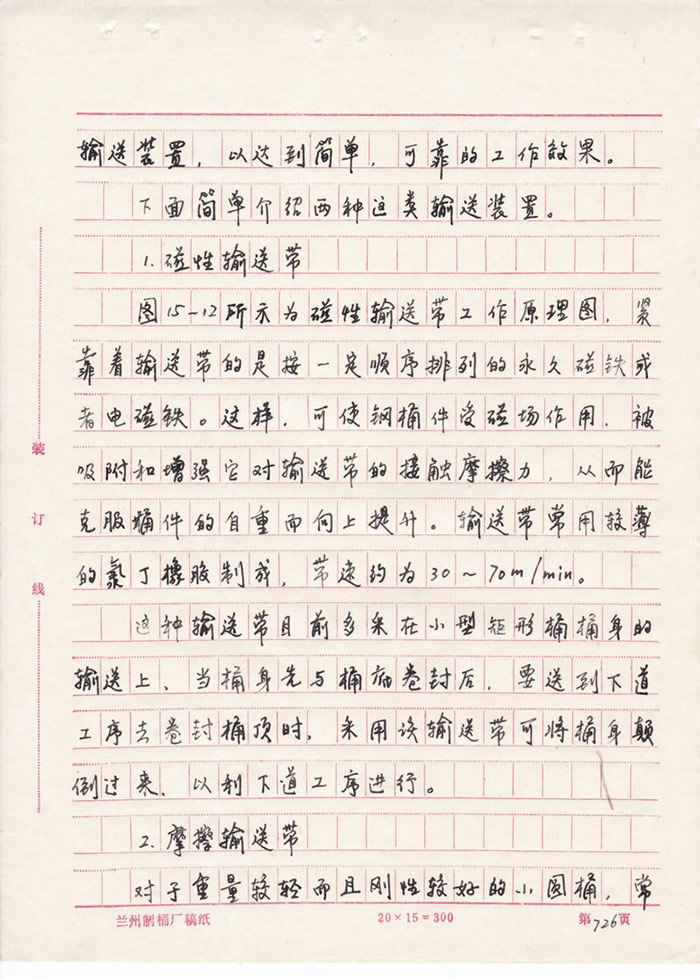 输送装置，以达到简单，可靠的工作效果。
下面简单介绍两种这类输送装置。
1.磁性输送带
图15-12所示为磁性输送带工作原理图，紧
靠着输送带的是按一定顺序排列的永久磁铁或
者电磁铁。这样，可使钢桶件受磁场作用，被
吸附和增强它对输送带的接触摩擦力，从而能
克服桶件的自重而向上提升。输送带常用较薄
的氯丁橡胶制成，带速约为30～70m/min。
这种输送带目前多采在小型矩形桶桶身的
输送上，当桶身先与桶底卷封后，要送到下道
工序去卷封桶顶时，采用该输送带可将桶身颠
倒过来，以利下道工序进行。
2.摩擦输送带
对于重量较轻而且刚性较好的小圆桶，常
装
订
线
兰州制桶厂稿纸 20×15=300 第726页